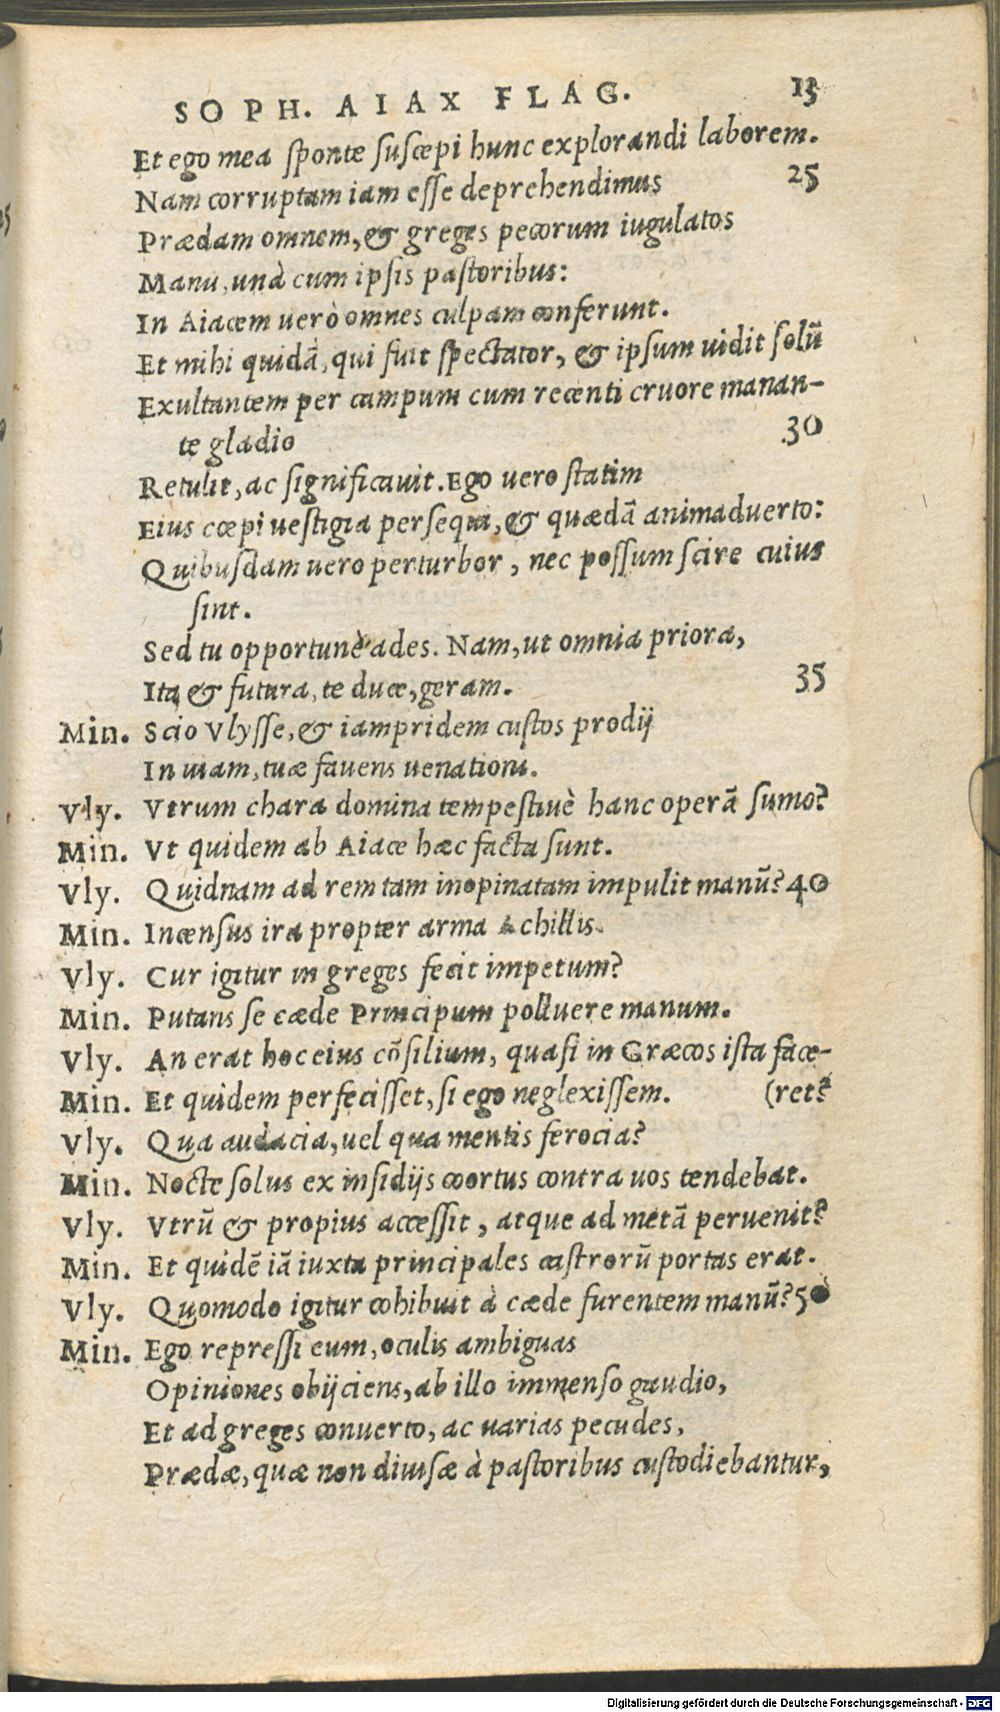 SOPH. AIAX FLAG. 13
Et ego mea sponte suscepi hunc explorandi laborem.
Nam corruptam iam esse deprehendimus 25
Prædam omnem, & greges pecorum iugulatos
Manu, unà cum ipsis pastoribus:
In Aiacem uerò omnes culpam conferunt.
Et mihi quidã, qui fuit spectator, & ipsum uidit solũ
Exultantem per campum cum recenti cruore manan-
te gladio 30
Retulit, ac significauit. Ego uero statim
Eius cœpi uestigia persequi, & quædã animaduerto:
Quibusdam uero perturbor, nec possum scire cuius
sint.
Sed tu opportunè ades. Nam, ut omnia priora,
Ita & futura, te duce, geram. 35
Min. Scio Vlysse, & iampridem custos prodij
In uiam, tuæ fauens uenationi.
Vly. Vtrum chara domina tempestiuè hanc operã sumo?
Min. Vt quidem ab Aiace hæc facta sunt.
Vly. Quidnam ad rem tam inopinatam impulit manũ? 40
Min. Incensus ira propter arma Achillis.
Vly. Cur igitur in greges fecit impetum?
Min. Putans se cæde Principum polluere manum.
Vly. An erat hoc eius cõsilium, quasi in Græcos ista face-
Min. Et quidem perfecisset, si ego neglexissem. (ret?
Vly. Qua audacia, uel qua mentis ferocia?
Min. Nocte solus ex insidijs coortus contra uos tendebat.
Vly. Vtrũ & propius accessit, atque ad metã peruenit?
Min. Et quidẽ iã iuxta principales castrorũ portas erat.
Vly. Quomodo igitur cohibuit à cæde furentem manũ? 50
Min. Ego repressi eum, oculis ambiguas
Opiniones obijciens, ab illo immenso gaudio,
Et ad greges conuerto, ac uarias pecudes,
Prædæ, quæ non diuisæ à pastoribus custodiebantur,
Digitalisierung gefördert durch die Deutsche Forschungsgemeinschaft - DFG